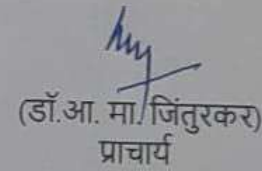 (डॉ.आ. मा. जिंतुरकर)
प्राचार्य